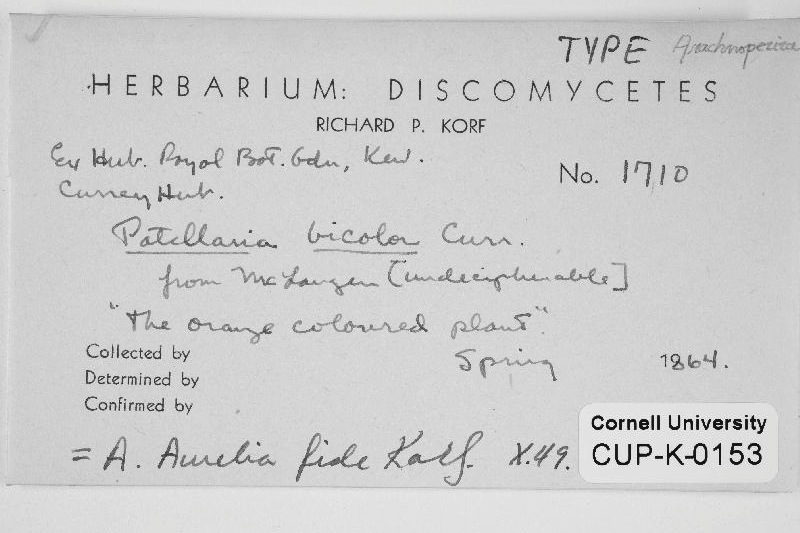 TYPE Arachnopeziza
HERBARIUM: DISCOMYCETES
RICHARD P. KORF
Ex Hub. Royal Bot. Gdn, Kew.
Currey Hub.
No. 1710
Patellaria bicolor Curr.
from [undecipherable]
"The orange coloured plant".
Spring 1864.
Collected by
Determined by
Confirmed by
= A. Aurelia fide Korf. X.49.
Cornell University
CUP-K-0153